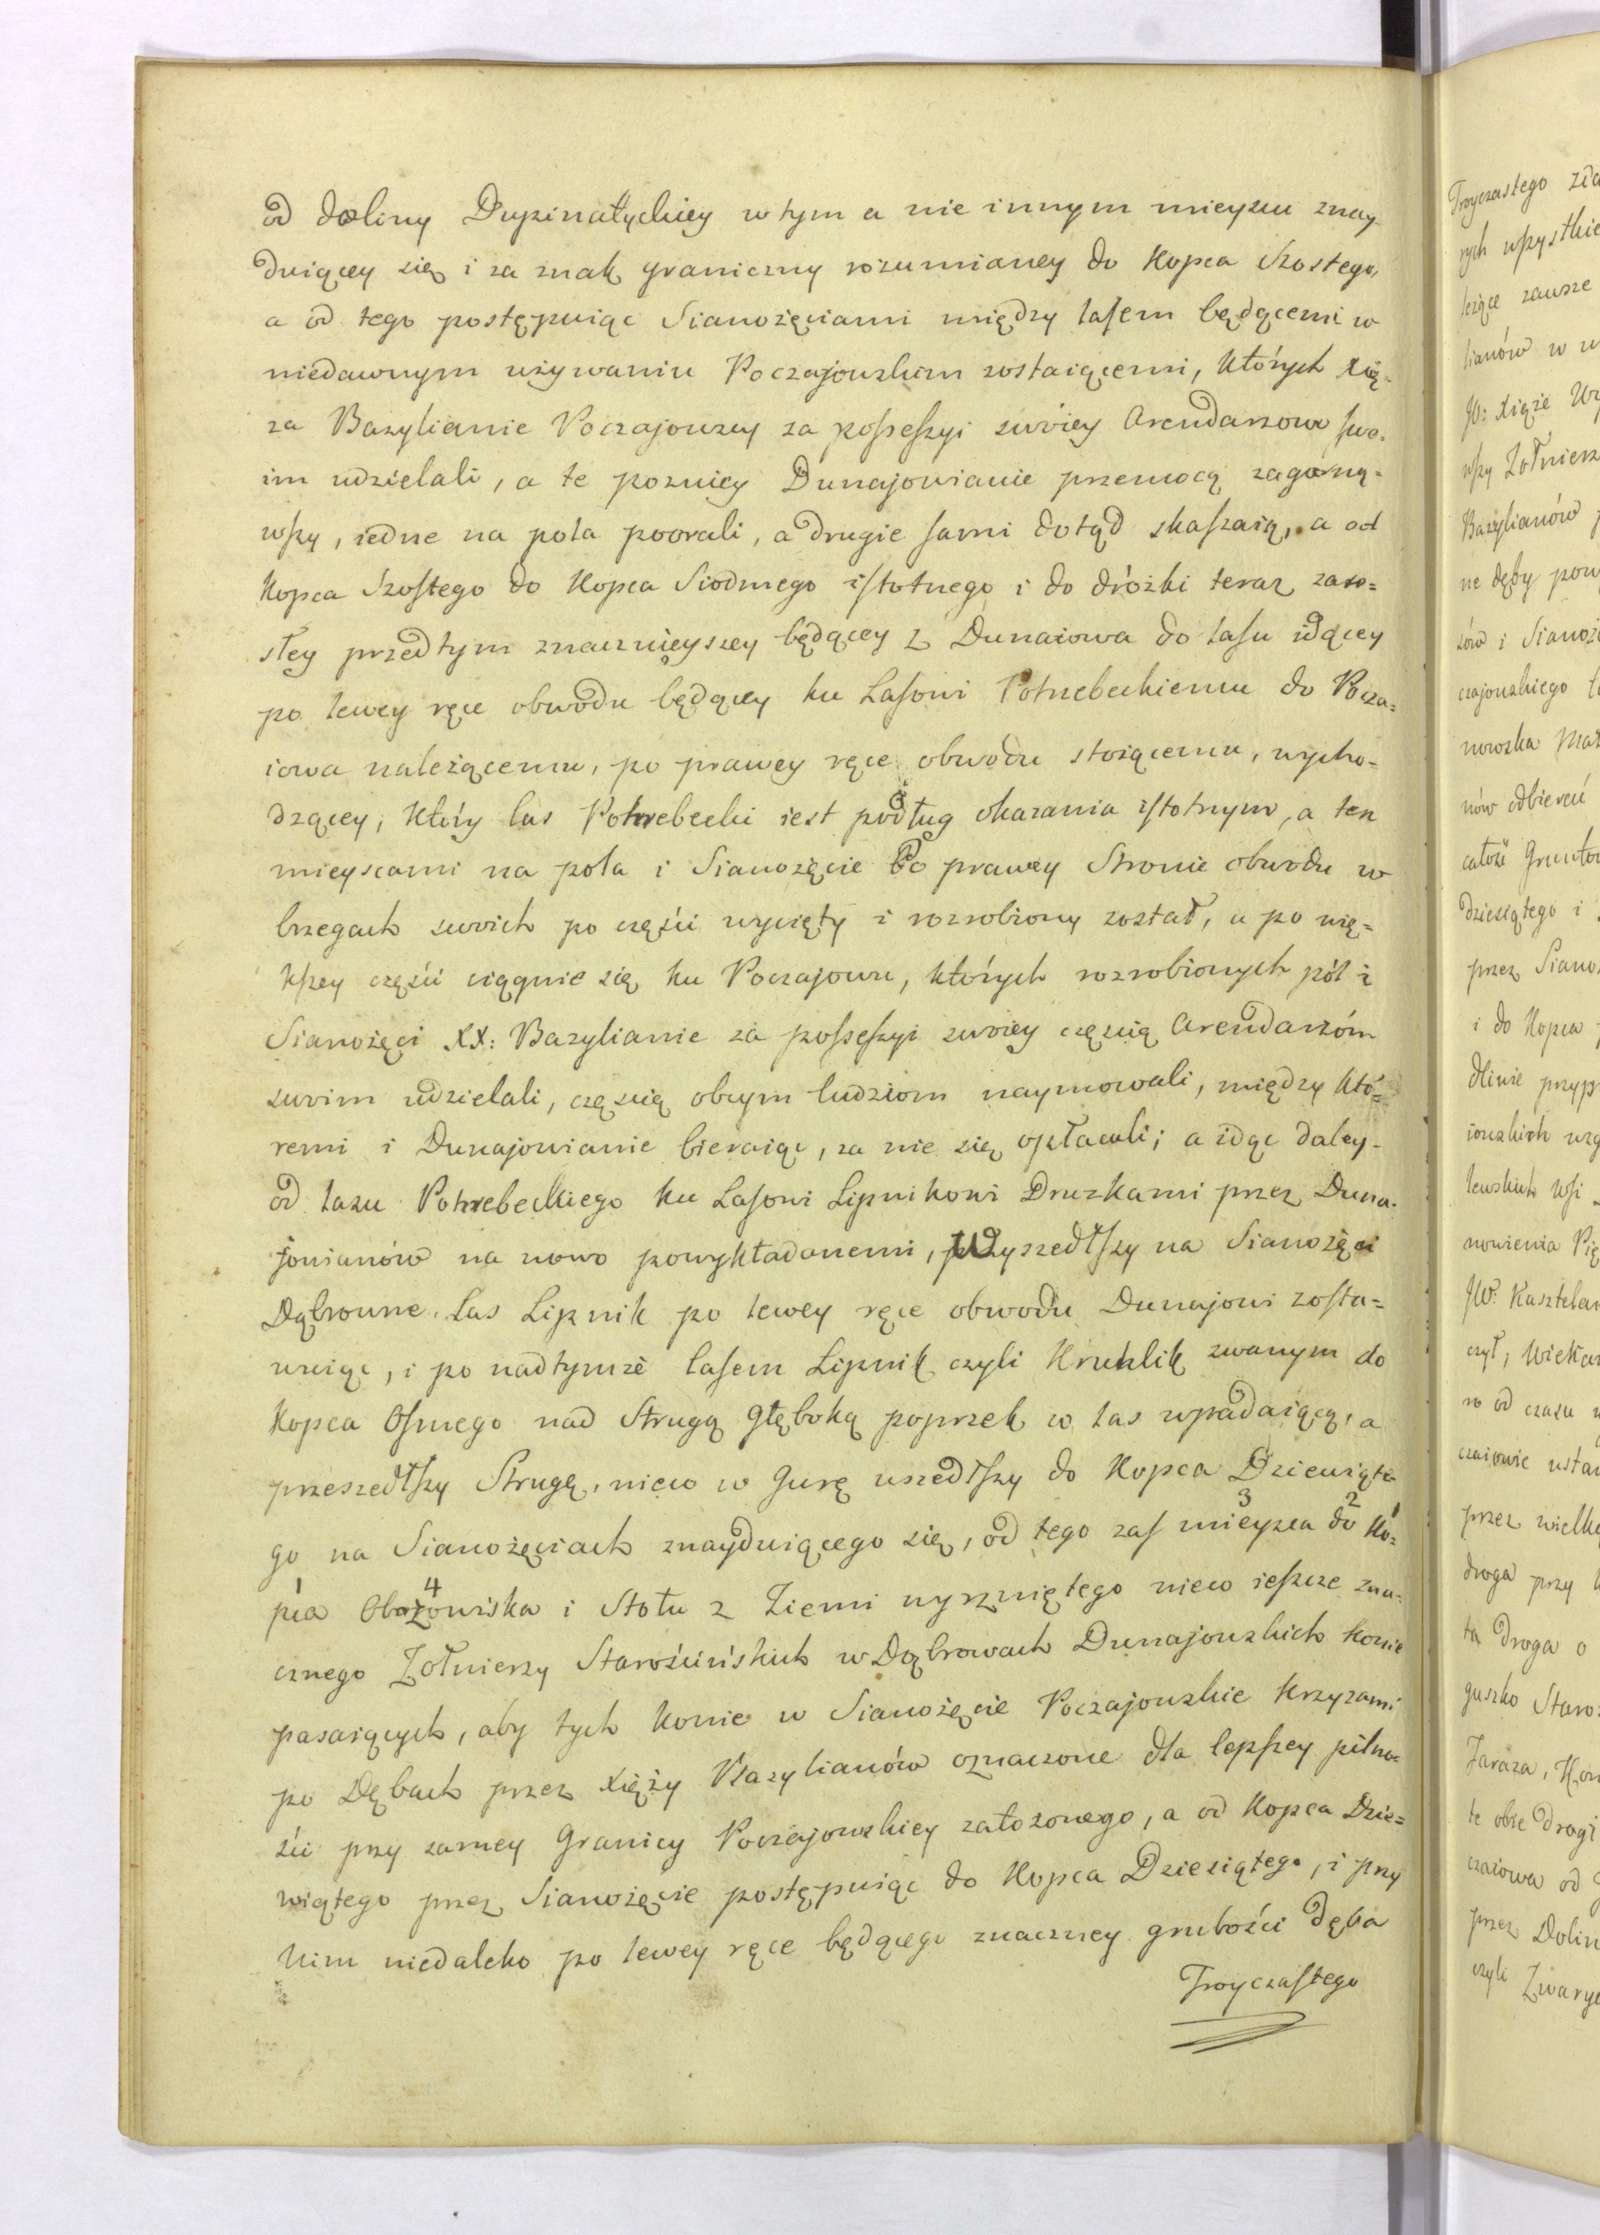 od doliny Dupinatyckiey w tym a nie innym mieyscu znay
duiącey się i za znak graniczny rozumianey do Kopca Szostego,
a od tego postępuiąc Sianożęciami między lasem będącemi w
niedawnym używaniu Poczajowskim zostaiącemi, których Xię-
za Bazylianie Poczajowscy za possessyi swoiey Arendarzowi swo-
im udzielali, a te pozniey Dunajowianie przemocą zagarną-
wszy, iedne na pola poorali, a drugie sami dotąd skaszaią, a od
Kopca Szostego do Kopca Siodmego istotnego i do dróżki teraz zaro=
słey przedtym znacznieyszey będącey z Dunaiowa do lasu idącey
po lewey ręce obwodu będącey ku Lasowi Potrebeckiemu do Pocza=
iowa należącemu, po prawey ręce obwodu stoiącemu, wycho=
dzącey, który las Potrebecki iest podług okazania istotnym, a ten
mieyscami na pola i Sianożęcie Po prawey Stronie obwodu w
brzegach swoich po części wycięty i rozrobiony został, a po wię=
kszey części ciągnie się ku Poczajowu, których rozrobionych pól i
Sianożęci XX: Bazylianie za possessyi swoiey częscią Arendarzóm
swoim udzielali, częscią obcym ludziom naymowali, między któ=
remi i Dunajowianie bieraiąc, za nie się opłacali; a idąc daley
od lasu Potrebeckiego ku Lasowi Lipnikowi Druzkami przez Duna-
jowianów na nowo powykładanemi, Wyszedłszy na Sianożęci
Dąbrowne. Las Lipnik po lewey ręce obwodu Dunajowi zosta=
wuiąc, i po nadtymże lasem Lipnik czyli Kruklik zwanym do
Kopca Osmego nad Strugą głęboką poprzek w las wpadaiącą, a
przeszedłszy Strugę, nieco w Gurę uszedłszy do Kopca Dziewiąte
go na Sianożęciach znayduiącego się, od tego zas 3 mieysca 2 do 1 Ko=
1 pca 4 Obozowiska i Stołu z Ziemi wyrzniętego nieco ieszcze zna-
cznego Żołnierzy Starościńskich w Dąbrowach Dunajowskich konie
pasaiących, aby tych konie w Sianożęcie Poczajowskie krzyzami
po Dębach przez Xięży Bazylianów oznaczone dla lepszey pilno=
ści przy samey Granicy Poczajowskiey założonego, a od Kopca Dzie=
wiątego przez Sianożęcie postępuiąc do Kopca Dziesiątego, i przy
nim niedaleko po lewey ręce będącego znaczney grubości Dęba
Troyczastego
Troyczastego
rych wszystkie
leżące zawsze
lianów w
JO: Xiąże
wszy Żołnierz
Bazylianów
ne dęby
zów i Sianoż
czajowskiego
nowska
nów odbiereń
całość Grunto
dziesiątego i
przez Siano
i do Kopca
dliwie
iowskich
lewskich Wsi
nowienia
JW. Kasztelan
czył,
w od czasu
czaiowie
przez wielk
droga przy
ta droga o
guszko Staro
Zaraza,
te obie drogi
czaiowa od
przez Dolin
czyli Zwaryc